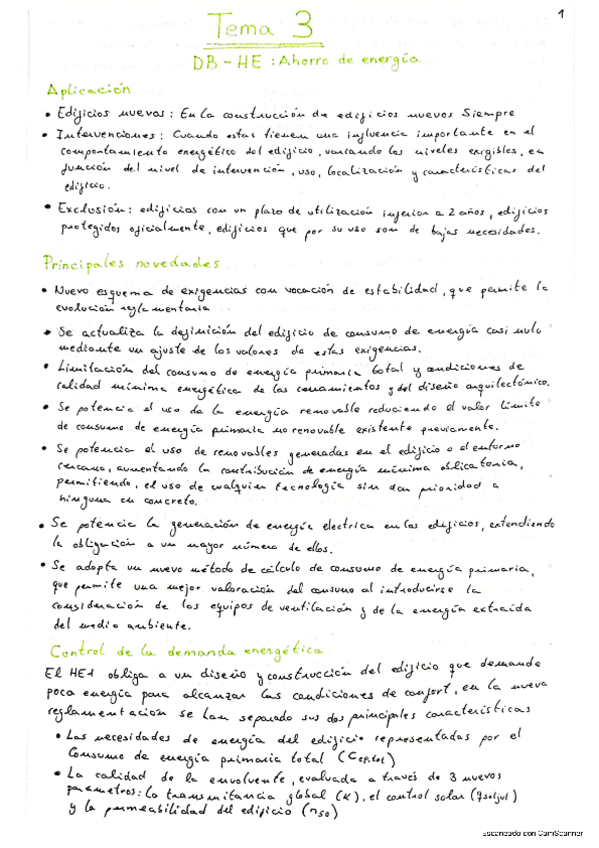 1
Tema 3
DB-HE: Ahorro de energía
Aplicación
• Edificios nuevos: En la construcción de edificios nuevos Siempre
• Intervenciones: Cuando estas tienen una influencia importante en el
comportamiento energético del edificio, variando los niveles exigibles, en
función del nivel de intervención, uso, localización y características del
edificio.
• Exclusión: edificios con un plazo de utilización inferior a 2 años, edificios
protegidos oficialmente, edificios que por su uso son de bajas necesidades.
Principales novedades
• Nuevo esquema de exigencias con vocación de estabilidad, que permite la
evolución reglamentaria
• Se actualiza la definición del edificio de consumo de energía casi nulo
mediante un ajuste de los valores de estas exigencias.
• Limitación del consumo de energía primaria total y condiciones de
calidad mínima energética de los cerramientos y del diseño arquitectónico.
• Se potencia el uso de la energía renovable reduciendo el valor límite
de consumo de energía primaria no renovable existente previamente.
• Se potencia el uso de renovables generadas en el edificio o el entorno
cercano, aumentando la contribución de energía mínima obligatoria,
permitiendo, el uso de cualquier tecnología sin dar prioridad a
ninguna en concreto.
• Se potencia la generación de energía electrica en los edificios, extendiendo
la obligación a un mayor número de ellos.
• Se adopta un nuevo método de cálculo de consumo de energía primaria,
que permite una mejor valoración del consumo al introducirse la
consideración de los equipos de ventilación y de la energía extraída
del medio ambiente.
Control de la demanda energética
El HE1 obliga a un diseño y construcción del edificio que demande
poca energía para alcanzar las condiciones de confort, en la nueva
reglamentación se han separado sus dos principales características
• Las necesidades de energía del edificio representadas por el
Consumo de energía primaria total (Cep,tot)
• La calidad de la envolvente, evaluada a través de 3 nuevos
parámetros: la transmitancia global (K), el control solar (qsol;jul)
y la permeabilidad del edificio (n50)
Escaneado con CamScanner